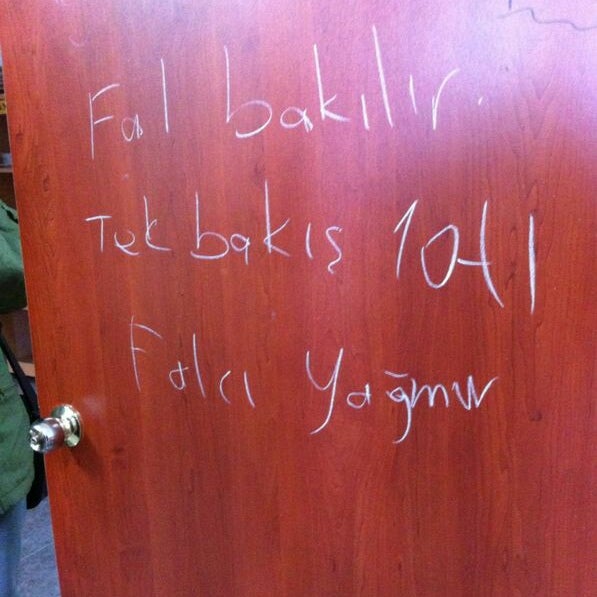 Fal bakılır.
Tek bakış 10 tl
Falcı Yağmur